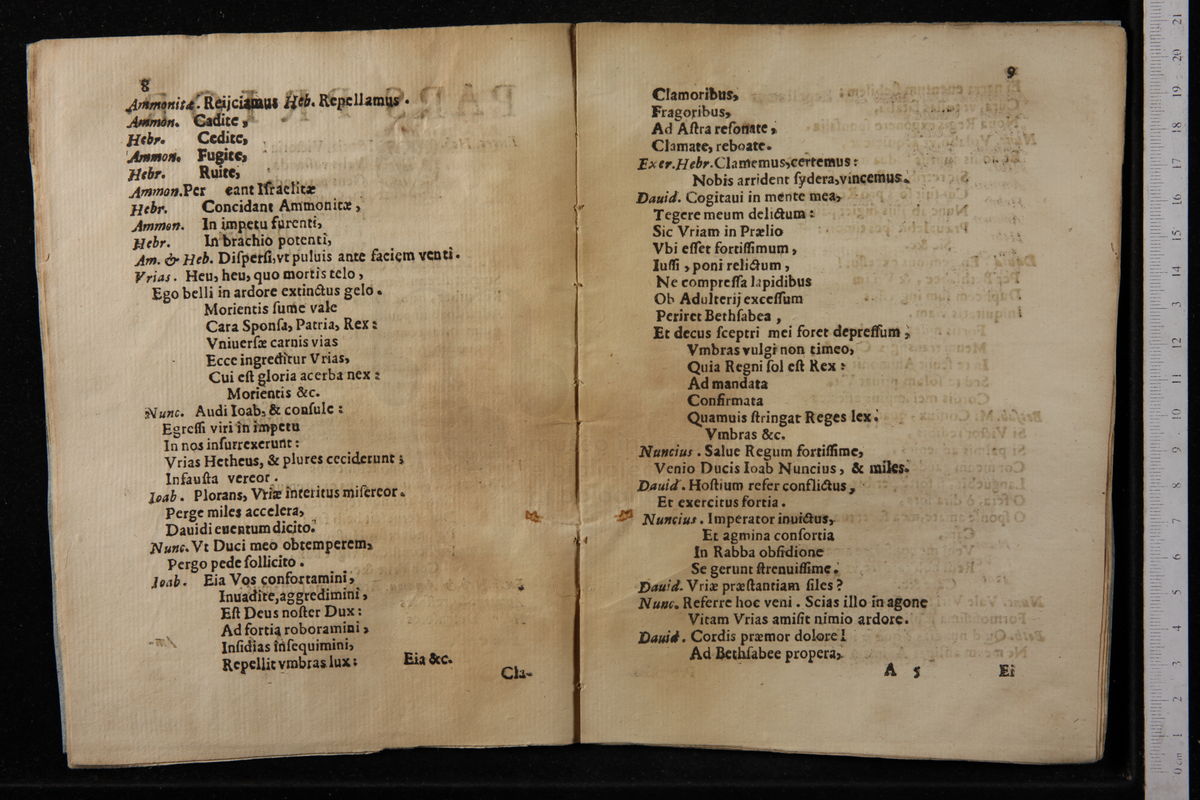 8
Ammonitæ. Reijciamus Heb. Repellamus.
Ammon. Cadite,
Hebr. Cedite,
Ammon. Fugite,
Hebr. Ruite,
Ammon. Per eant Iſraelitæ
Hebr. Concidant Ammonitæ,
Ammon. In impetu furenti,
Hebr. In brachio potenti,
Am. & Heb. Diſperſi, vt puluis ante faciem venti.
Vrias. Heu, heu, quo mortis telo,
Ego belli in ardore extinctus gelo.
Morientis ſume vale
Cara Sponſa, Patria, Rex:
Vniuerſæ carnis vias
Ecce ingreditur Vrias,
Cui eſt gloria acerba nex:
Morientis &c.
Nunc. Audi Ioab, & conſule:
Egreſſi viri in impetu
In nos inſurrexerunt:
Vrias Hetheus, & plures ceciderunt;
Infauſta vereor.
Ioab. Plorans, Vriæ interitus miſereor.
Perge miles accelera,
Dauidi euentum dicito.
Nunc. Vt Duci meo obtemperem,
Pergo pede ſollicito.
Ioab. Eia Vos confortamini,
Inuadite, aggredimini,
Eſt Deus noſter Dux:
Ad fortia roboramini,
Inſidias inſequimini,
Repellit vmbras lux: Eia &c.
Cla-
9
Clamoribus,
Fragoribus,
Ad Aſtra reſonate,
Clamate, reboate.
Exer. Hebr. Clamemus, certemus:
Nobis arrident ſydera, vincemus.
Dauid. Cogitaui in mente mea,
Tegere meum delictum:
Sic Vriam in Prælio
Vbi eſſet fortiſſimum,
Iuſſi, poni relictum,
Ne compreſſa lapidibus
Ob Adulterij exceſſum
Periret Bethſabea,
Et decus ſceptri mei foret depreſſum;
Vmbras vulgi non timeo,
Quia Regni ſol eſt Rex:
Ad mandata
Confirmata
Quamuis ſtringat Reges lex.
Vmbras &c.
Nuncius. Salue Regum fortiſſime,
Venio Ducis Ioab Nuncius, & miles.
Dauid. Hoſtium refer conflictus,
Et exercitus fortia.
Nuncius. Imperator inuictus,
Et agmina conſortia
In Rabba obſidione
Se gerunt ſtrenuiſſime.
Dauid. Vriæ præſtantiam ſiles?
Nunc. Referre hoc veni. Scias illo in agone
Vitam Vrias amiſit nimio ardore.
Dauid. Cordis præmor dolore!
Ad Bethſabee propera,
A 5 Ei